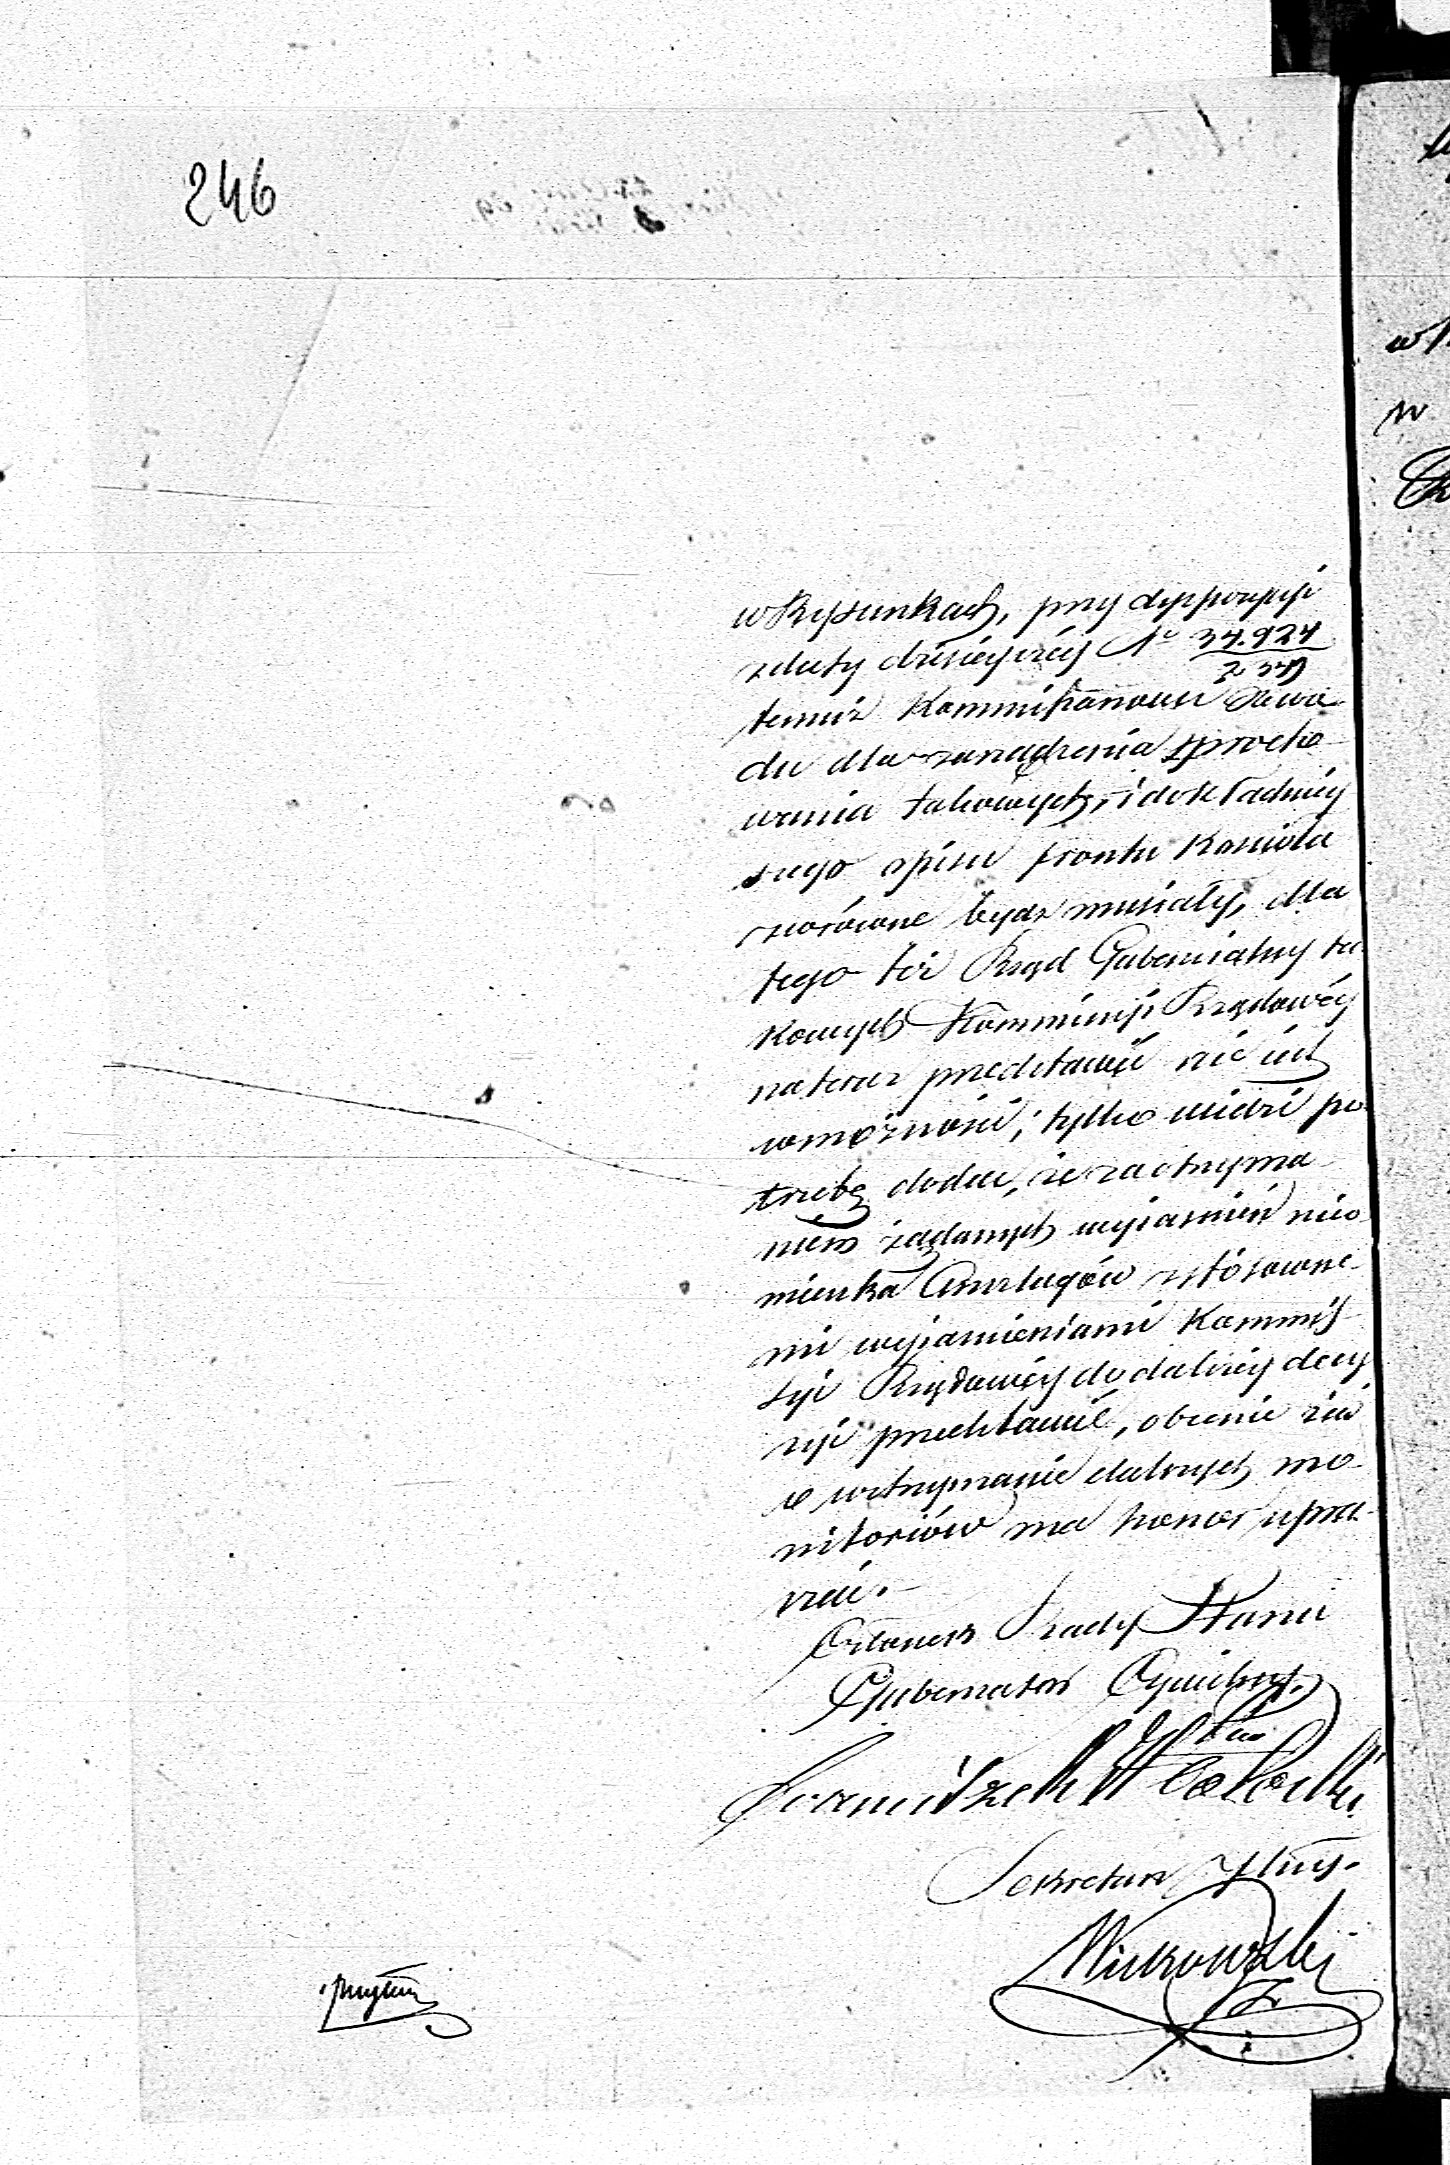 246
w Rysunkach, przy dyspozycyi
z daty dzisieyszéy No 34.924
temuż Kommissarzowi Obwo
du dla zarządzenia sprosto
wania takowych, i dokładniey
szego opisu frontu Kościoła
zwrócone bydz musiały, dla
tego też Rząd Gubernialny ta
kowych Kommissyi Rządowéy
na teraz przedstawić nie iest
w możności, tylko widzi po
trzebę dodać, że za otrzyma
niem żądanych wyiaśnień nieo
mieszka Anszlagów z stósowne
mi wyjaśnieniami Kommis
syi Rządowéy do dalszéy decy
zyi przedstawić, obecnie zaś
o wstrzymanie dalszych mo
nitoriów ma honor upra
szać.
Członek Rady Stanu
Gubernator Cywilny.
Sekretarz Jlny.